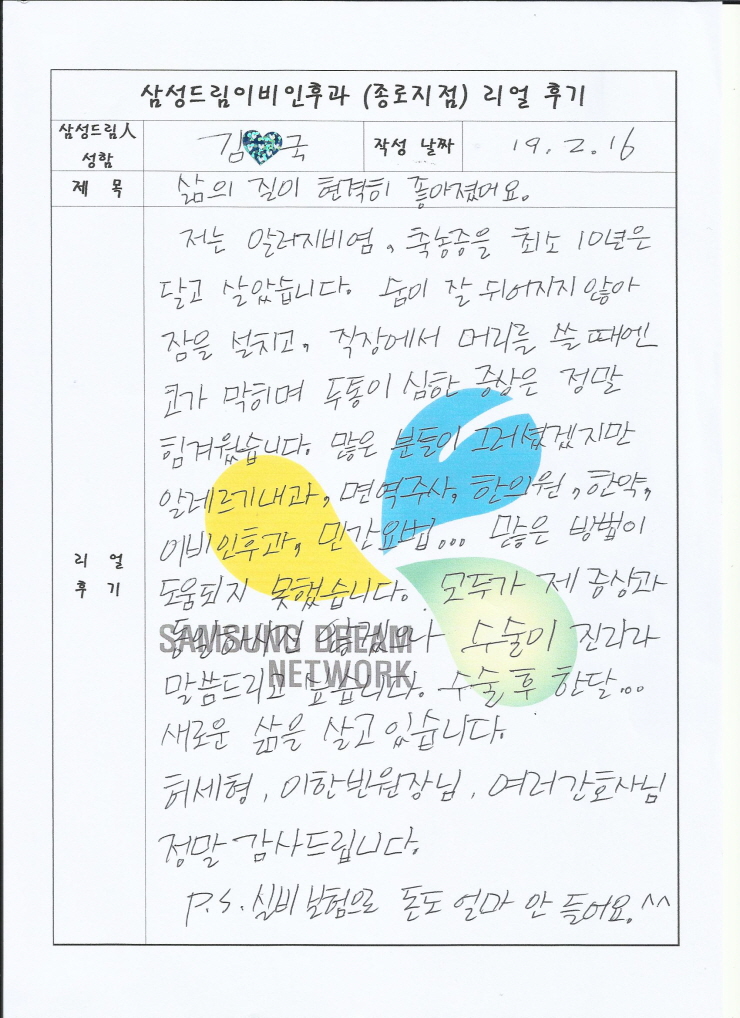 삼성드림이비인후과 (종로지점) 리얼 후기
삼성드림人 성함 김국 작성 날짜 19. 2. 16
제 목 삶의 질이 현격히 좋아졌어요.
리 얼 후 기
저는 알러지비염, 축농증을 최소 10년은
달고 살았습니다. 숨이 잘 쉬어지지 않아
잠을 설치고, 직장에서 머리를 쓸 때엔
코가 막히며 두통이 심한 증상은 정말
힘겨웠습니다. 많은 분들이 그러셨겠지만
알레르기내과, 면역주사, 한의원, 한약,
이비인후과, 민간요법... 많은 방법이
도움되지 못했습니다. 모두가 제 증상과
동일하시진 않겠으나 수술이 진리라
말씀드리고 싶습니다. 수술 후 한달...
새로운 삶을 살고 있습니다.
허세형, 이한빈원장님, 여러간호사님
정말 감사드립니다.
P.S. 실비 보험으로 돈도 얼마 안 들어요.^^
SAMSUNG DREAM
NETWORK